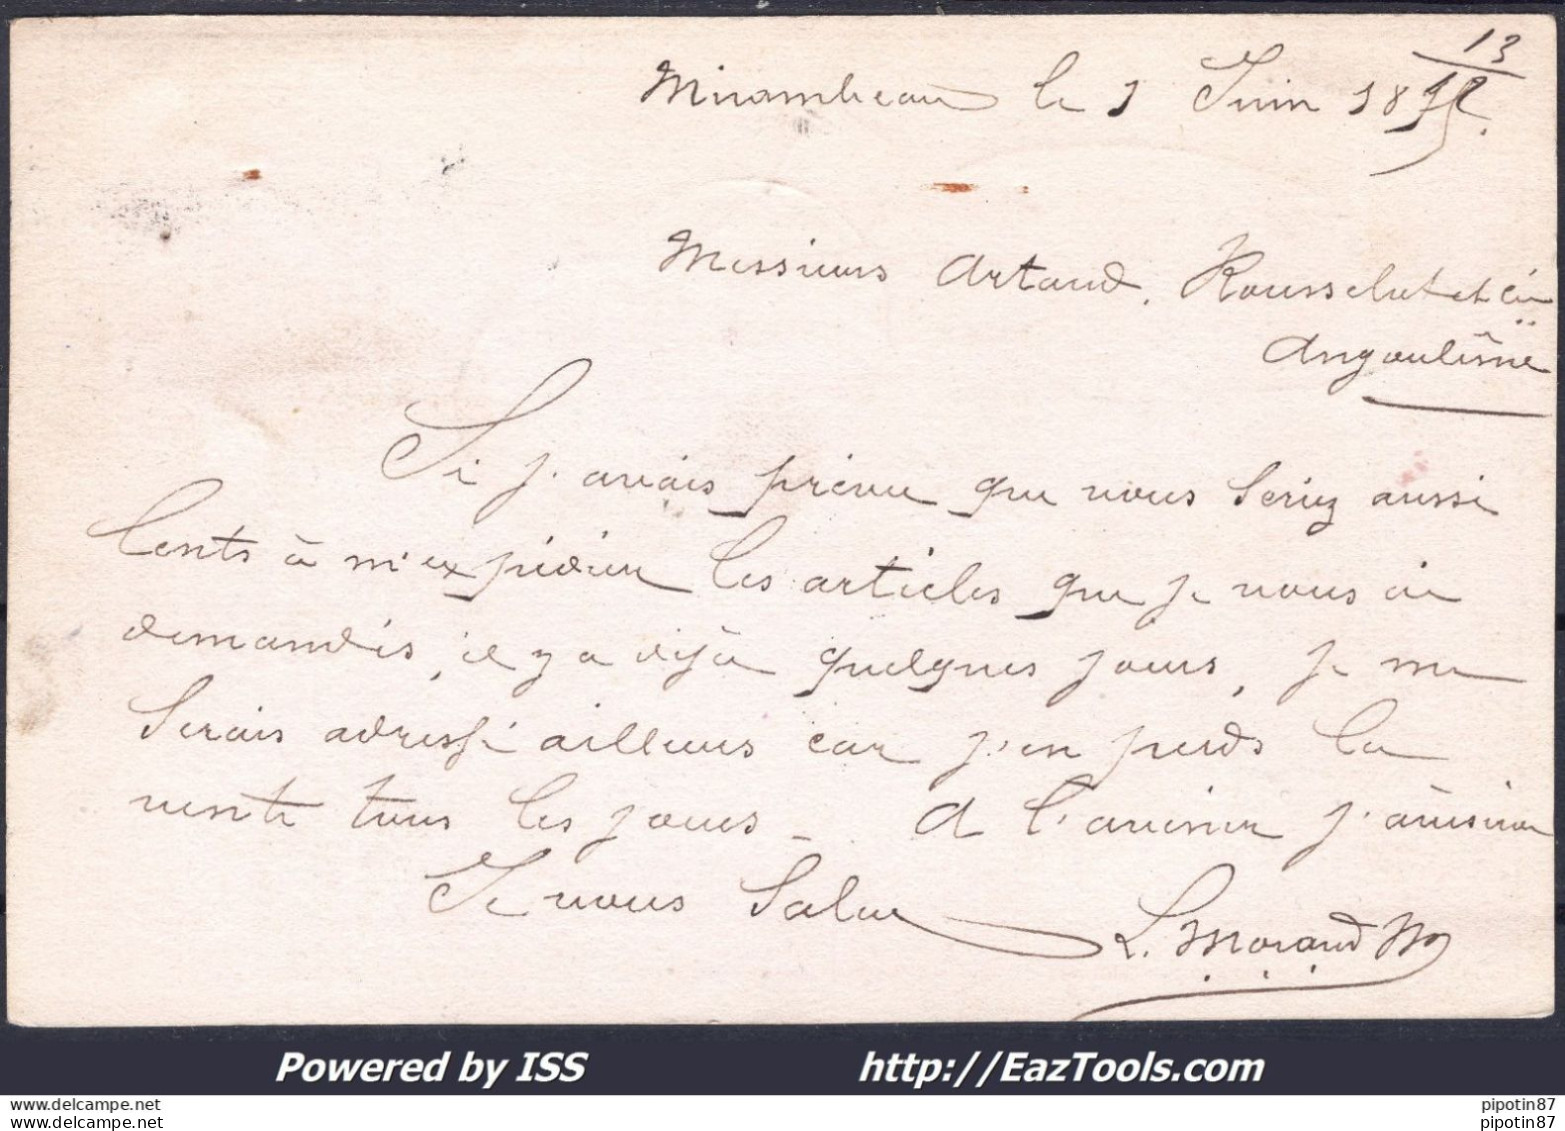 13
Mirambeau le 1 Juin 18
Messieurs Artaud, Rousselot et Cie
Angoulême
Si j'avais prévu que vous seriez aussi
lents à m'expédier les articles que je vous ai
demandés, il y a déjà quelques jours, je me
serais adressé ailleurs car j'en perds la
vente tous les jours - A l'avenir j'aviserai
Je vous salue L. Morand
Powered by ISS http://EazTools.com
www.delcampe.net pipotin87
www.delcampe.net pipotin87